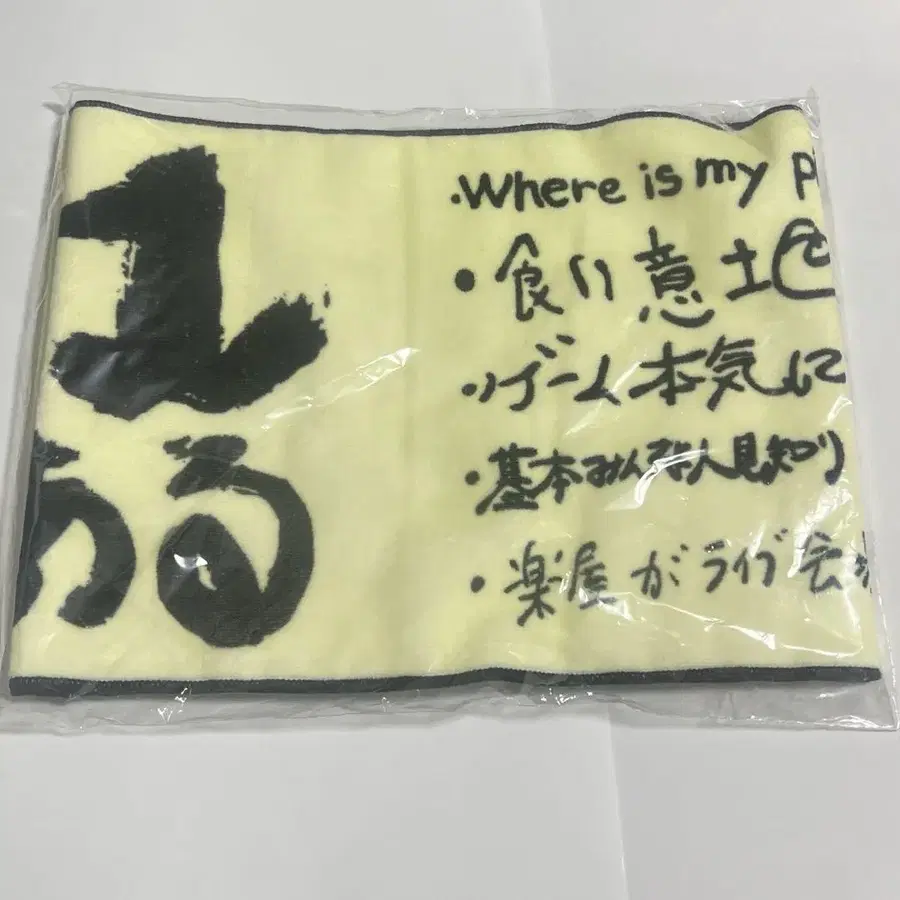 1
る
・Where is my
・食い意地
・ゲーム本気に
・基本みんな人見知り
・楽屋がライブ会